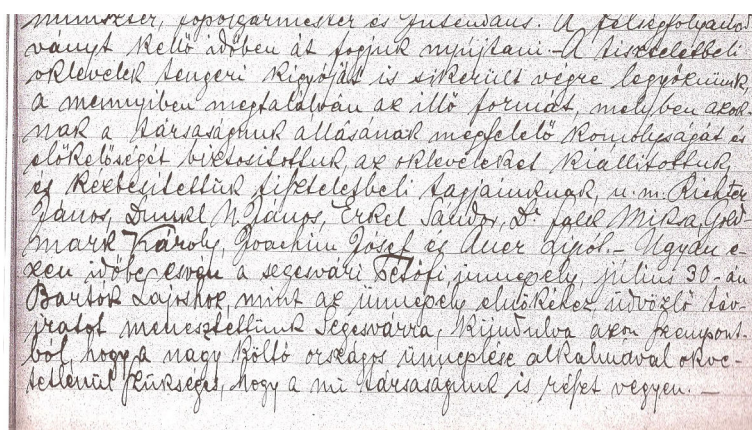 miniszter, főpolgármester és Intendáns. A felségfolyamod
ványt kellő időben át fogjuk nyújtani. - A tiszteletbeli
oklevelek tengeri kigyóját is sikerült végre legyőznünk,
a mennyiben megtalálván az illő formát, melyben azok
nak a társaságunk állásának megfelelő komolyságát és
előkelőségét biztosítottuk, az okleveleket kiállítottuk
és kézbesítettük tiszteletbeli tagjainknak, u. m. Richter
János, Dunkl N. János, Erkel Sándor, Dr Falk Miksa, Gold
mark Károly, Joachim József és Auer Lipót. - Ugyan e-
zen időbe esvén a segesvári Petőfi ünnepély, július 30-án
Bartók Lajoshoz, mint az ünnepély elnökéhez üdvözlő táv-
iratot menesztettünk Segesvárra, kiindulva azon szempont-
ból, hogy a nagy költő országos ünneplése alkalmával okve-
tetlenül szükséges, hogy a mi társaságunk is részt vegyen. -